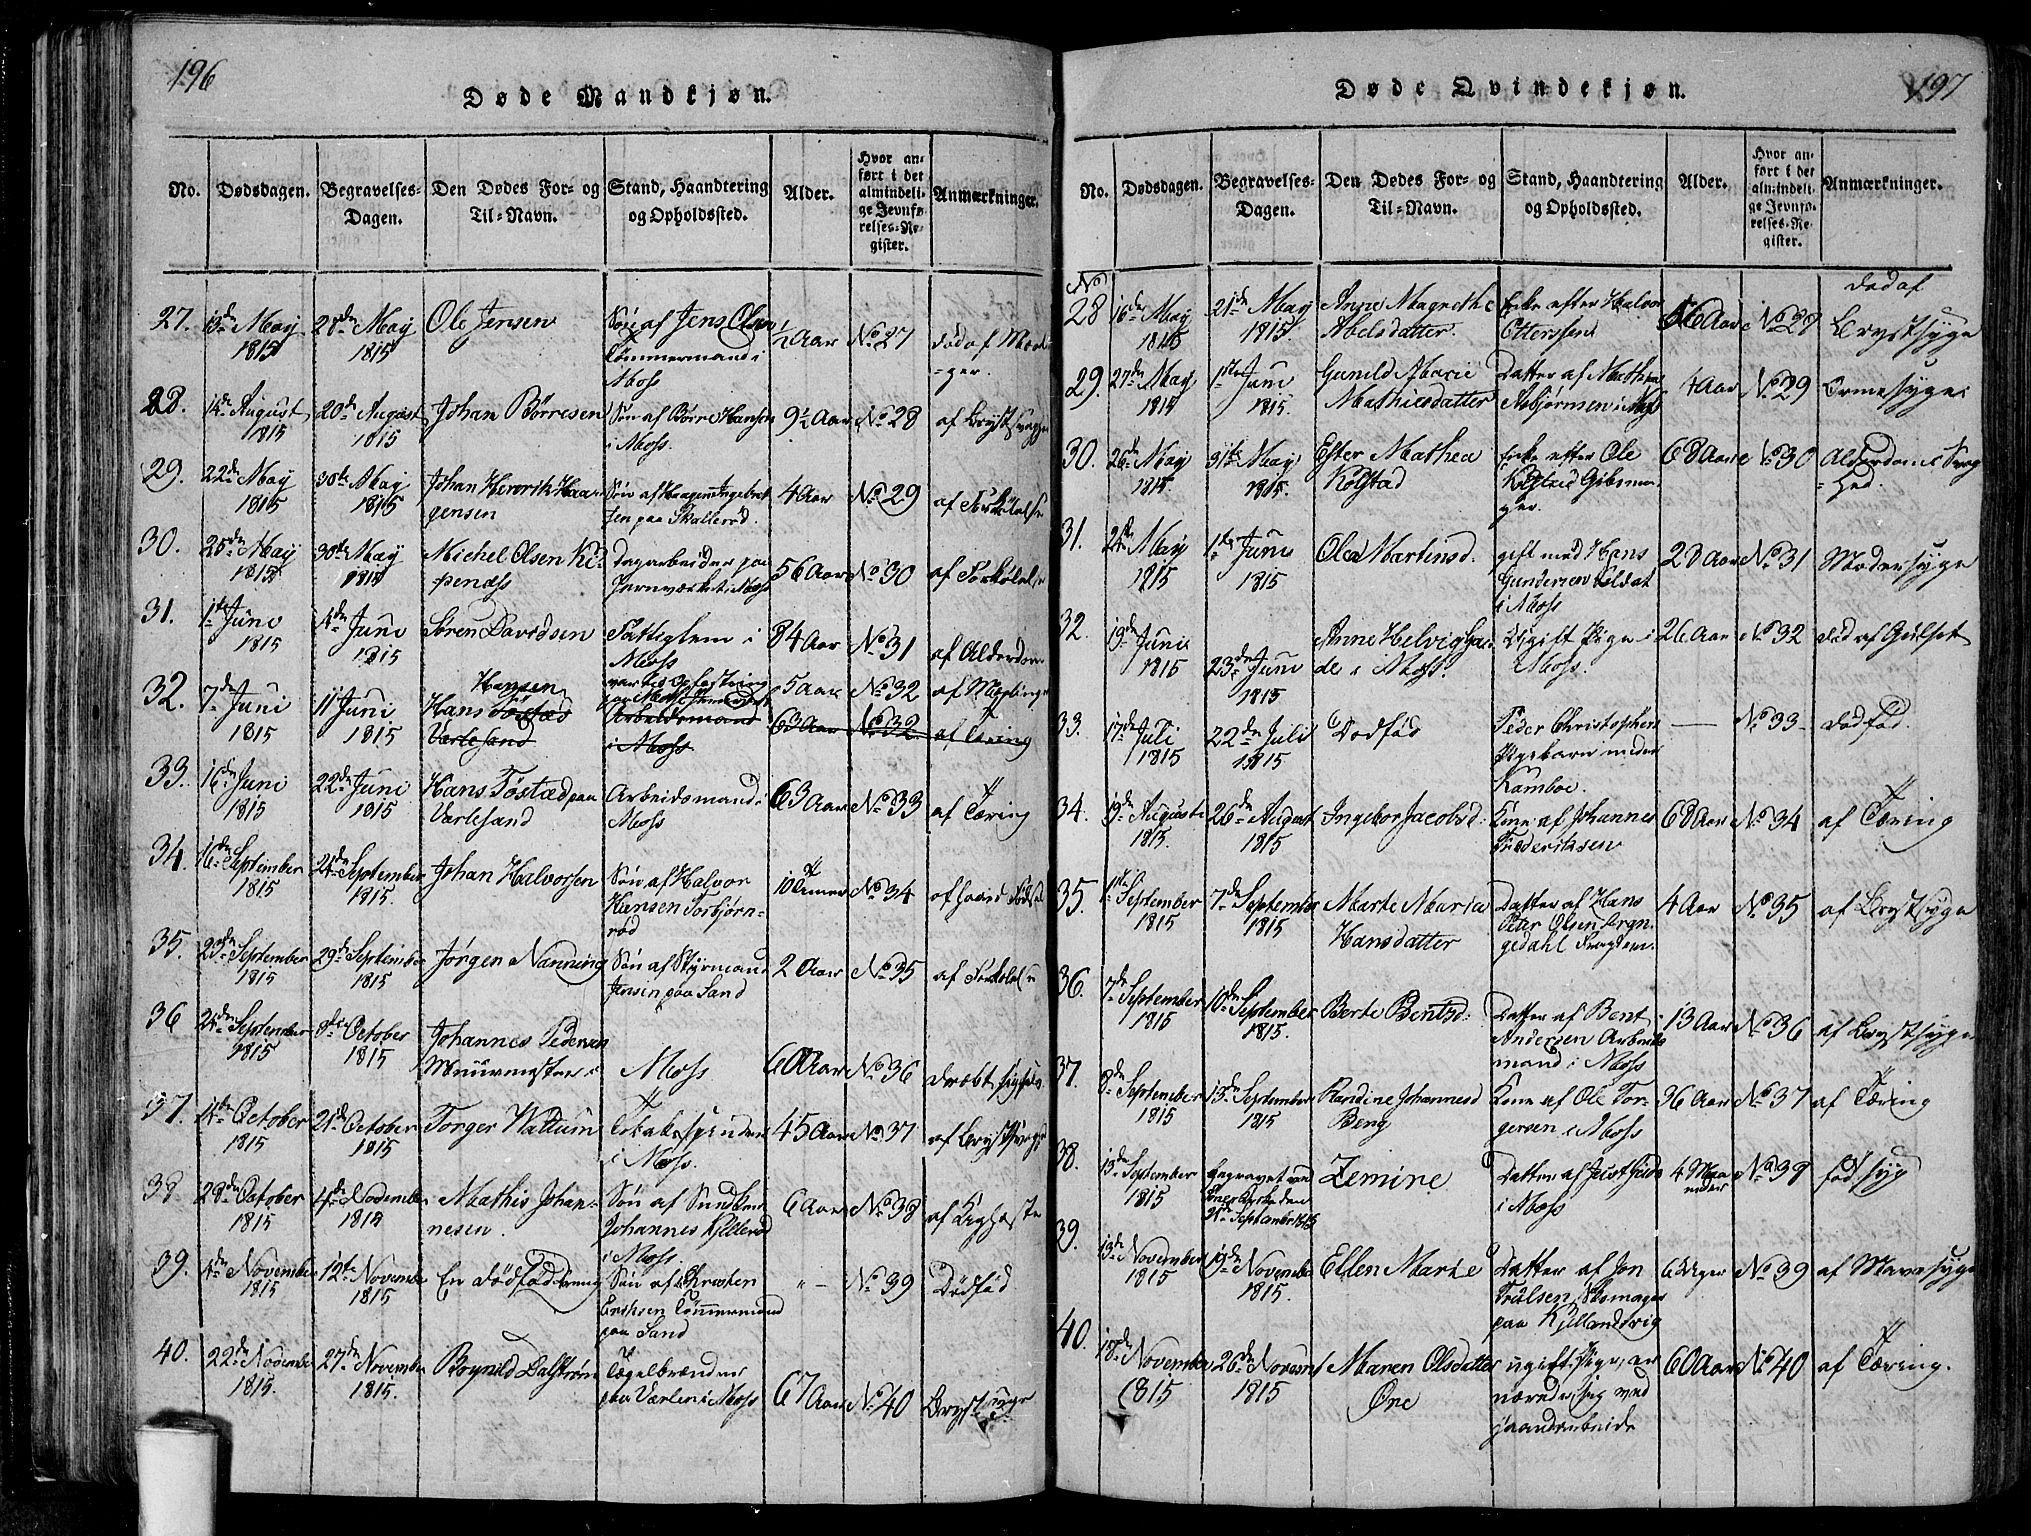 196
Døde Mandkjøn.
No. Dødsdagen. Begravelses-Dagen. Den Dødes For- og Til-Navn. Stand, Haandtering og Opholdssted. Alder. Hvor anført i det almindelige Jevnførelses-Register. Anmærkninger.
27. 13de May 1815 28de May 1815 Ole Jensen Søn af Jens Olsen Tømmermand i Moss ½ Aar No 27 død af
28. 14de August 1815 20de August 1815 Johan Børresen Søn af Børre Hansen i Moss. 9½ Aar No 28 af Brystsvaghed
29. 22de May 1815 30te May 1815 Johan Henrik Haagensen Søn af Haagen Ingebretsen paa Skallerød. 4 Aar No 29 af Forkølelse
30. 25de May 1815 30te May 1815 Michel Olsen Dagarbeider paa Jernværket i Moss 56 Aar No 30 af Forkølelse
31. 1te Juni 1815 4de Juni 1815 Søren Davidsen Fattiglem i Moss 84 Aar No 31 af Alderdom
32. 7de Juni 1815 11 Juni 1815 Hansen Hans Tøstad Værlesand Arbeidsmand i Moss 5 Aar No 32 af 63 Aar No 32. af Tæring
33. 16de Juni 1815 22de Juni 1815 Hans Tøstad paa Værlesand Arbeidsmand i Moss 63 Aar No 33 af Tæring
34. 16de September 1815 24de September 1815. Johan Halvorsen Søn af Halvor Hansen Torbjørnrød 10 No 34 af haard Fødsel
35. 25de September 1815 29de September 1815 Jørgen Nanning Søn af Styrmand Jensen paa Sand 2 Aar No 35 af Forkølelse
36 24de September 1815 8de October 1815 Johannes Pedersen Muurmester i Moss 60 Aar No 36 dræbt
37. 14de October 1815 21de October 1815 Torger Wattum Tobakspinder i Moss. 45 Aar No 37 af Brystsvaghed
38 28de October 1815 4de November 1815 Mathis Johannesen. Søn af Johannes Kyllerød i Moss 6 Aar No 38 af Kighoste
39. 4de November 1815 12te November 1815. En dødfød Dreng Søn af Christen Erichsen Tømmermand paa Sand " - No 39 Dødfød
40. 22de November 1815. 27de November 1815. Brynild Dalstrøm Tegelbrænder paa Værlen i Moss 67 Aar No 40 Brystsyge
197
Døde Qvindekjøn.
No. Dødsdagen. Begravelses-Dagen. Den Dødes For- og Til-Navn. Stand, Haandtering og Opholdssted. Alder. Hvor anført i det almindelige Jevnførelses-Register. Anmærkninger.
No 28 16de May 1815 21de May 1815. Anne Magrethe Abelsdatter. Enke efter Halvor Ottersen 56 Aar No 28 død af Brystsyge
29. 27de May 1815 1te Juni 1815. Gunild Marie Mathisdatter Datter af Mathias Asbjørnsen i Moss 4 Aar No 29 Ormesyge
30. 26de May 1815 31te May 1815. Ester Mathea Kolstad Enke efter Ole Kolstad 68 Aar No 30 Alderdoms Svaghed.
31. 24de May 1815 1te Juni 1815 Olea Martinsd. gift med Hans Gundersen Soldat i Moss 28 Aar No 31 Modersyge
32. 19de Juni 1815 23de Juni 1815 Anne Helvig i Moss. Ugift Pige i Moss. 26 Aar No 32 død af Gulsot
33. 17de Juli 1815 22de Juli 1815 Dødfød Peder Christophersen Pigebarn under Kamboe. — No 33 - dødfød.
34. 19de August 1815. 26de August 1815 Ingebor Jacobsd: Kone af Johannes Frederiksen 68 Aar No 34 af Tæring
35. 1te September 1815 7de September 1815 Marte Maria Hansdatter Datter af Hans Peter Olsen 4 Aar No 35 af Brystsyge
36. 7de September 1815 10de September 1815. Berte Bentsd: Datter af Bent Andersen Arbeidsmand i Moss 13 Aar No 36 af Brystsyge
37. 8de September 1815 13de September 1815 Randine Johannesd Berg Kone af Ole Torgersen i Moss 36 Aar No 37 af Tæring
38. 15de September 1815 begravet ved 24de September 1815 Zemine Datter af i Moss 4 Maaneder No 38 fød syg
39. 13de November 1815 19de November 1815. Ellen Marie Datter af Jon Truelsen Skomager paa Kyllandsvig 6 Uger No 39 af Mavesyge
40. 18de November 1815 26de November 1815 Maren Olsdatter Øne ugift Pige, ernærede sig ved Haandarbeide 60 Aar No 40 af Tæring.